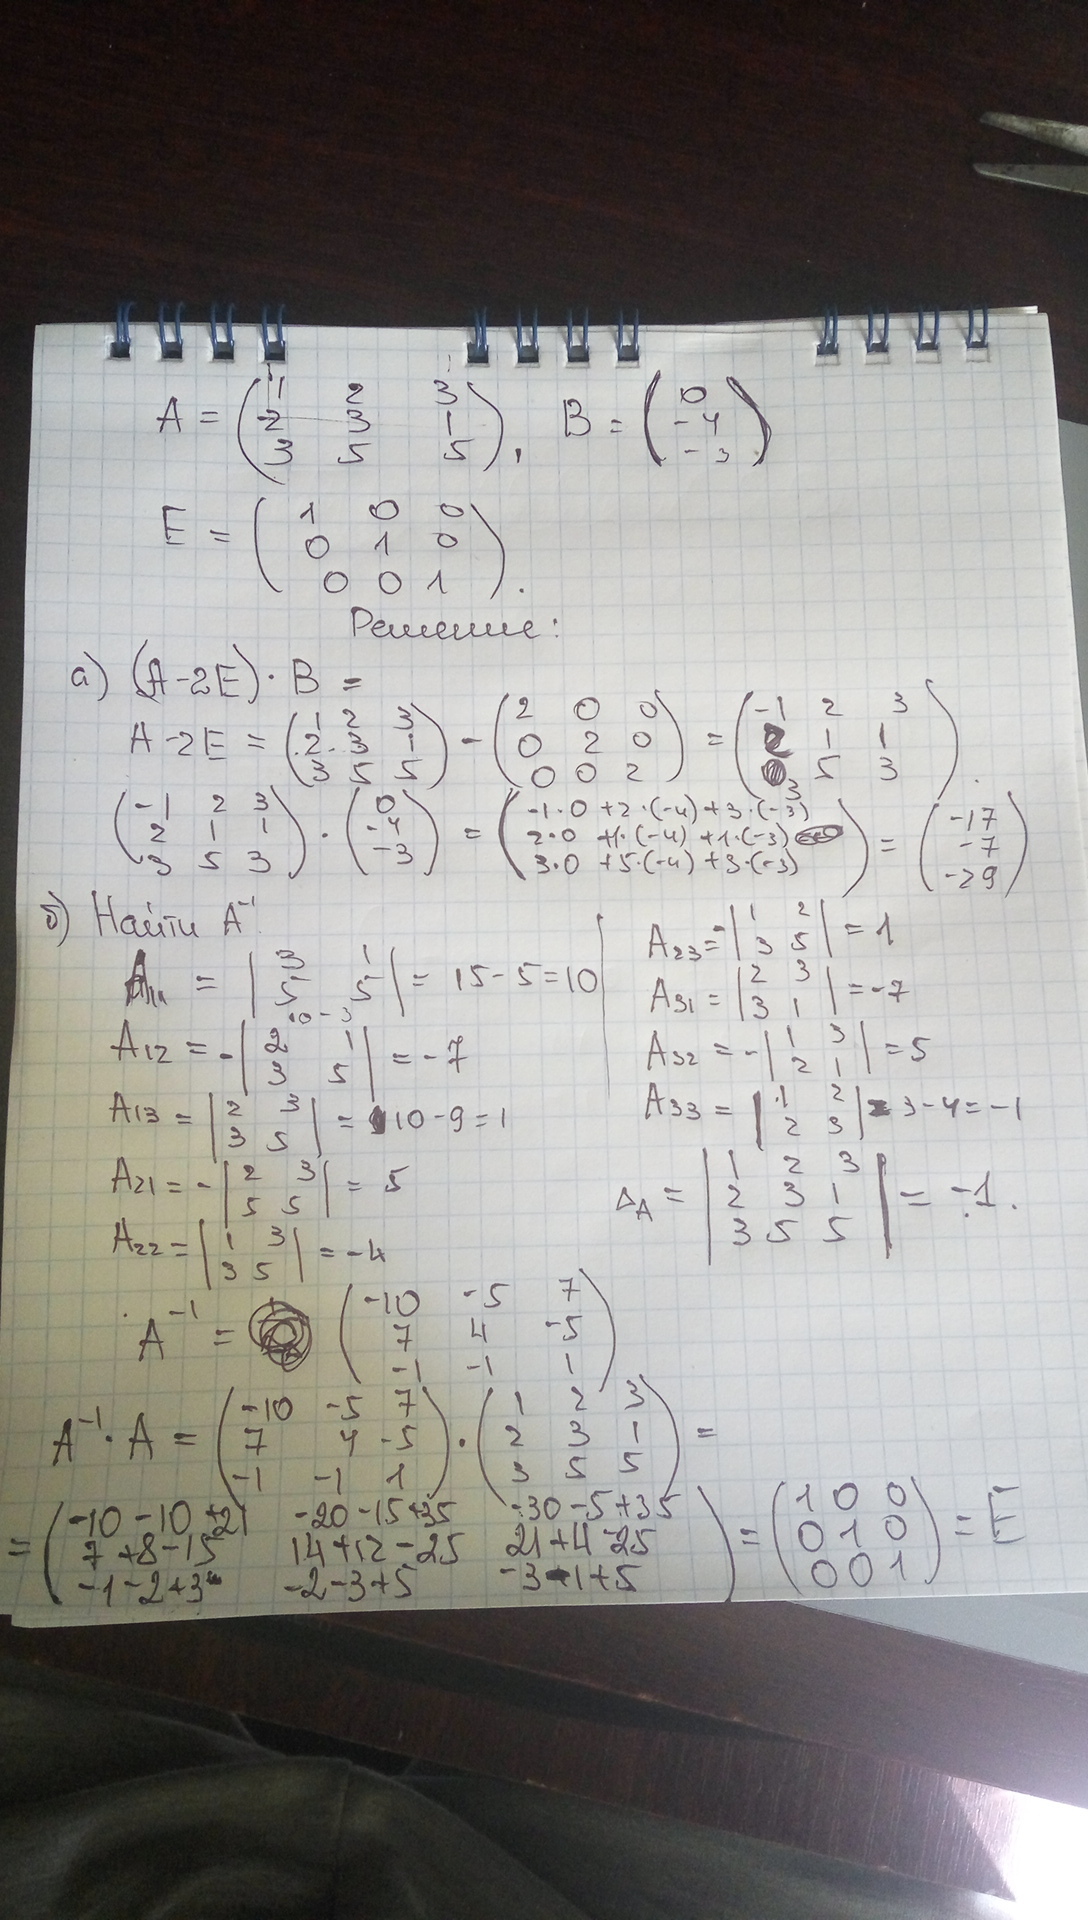 A = (1 2 3
2 3 1
3 5 5), B = (0
-4
-3)
E = (1 0 0
0 1 0
0 0 1).
Решение:
а) (A-2E)·B =
A-2E = (1 2 3
2 3 1
3 5 5) - (2 0 0
0 2 0
0 0 2) = (-1 2 3
2 1 1
3 5 3).
(-1 2 3
2 1 1
3 5 3) · (0
-4
-3) = (-1·0 +2·(-4)+3·(-3)
2·0 +1·(-4) +1·(-3)
3·0 +5·(-4) +3·(-3)) = (-17
-7
-29)
б) Найти A⁻¹
A₁₁ = |3 1
5 5| = 15-5=10
10-3
A₁₂ = -|2 1
3 5| = -7
A₁₃ = |2 3
3 5| = 10-9=1
A₂₁ = -|2 3
5 5| = 5
A₂₂ = |1 3
3 5| = -4
A₂₃ = -|1 2
3 5| = 1
A₃₁ = |2 3
3 1| = -7
A₃₂ = -|1 3
2 1| = 5
A₃₃ = |1 2
2 3| = 3-4=-1
Δ_A = |1 2 3
2 3 1
3 5 5| = -1.
A⁻¹ = (-10 -5 7
7 4 -5
-1 -1 1)
A⁻¹·A = (-10 -5 7
7 4 -5
-1 -1 1) · (1 2 3
2 3 1
3 5 5) =
= (-10-10+21 -20-15+35 -30-5+35
7+8-15 14+12-25 21+4-25
-1-2+3 -2-3+5 -3-1+5) = (1 0 0
0 1 0
0 0 1) = E